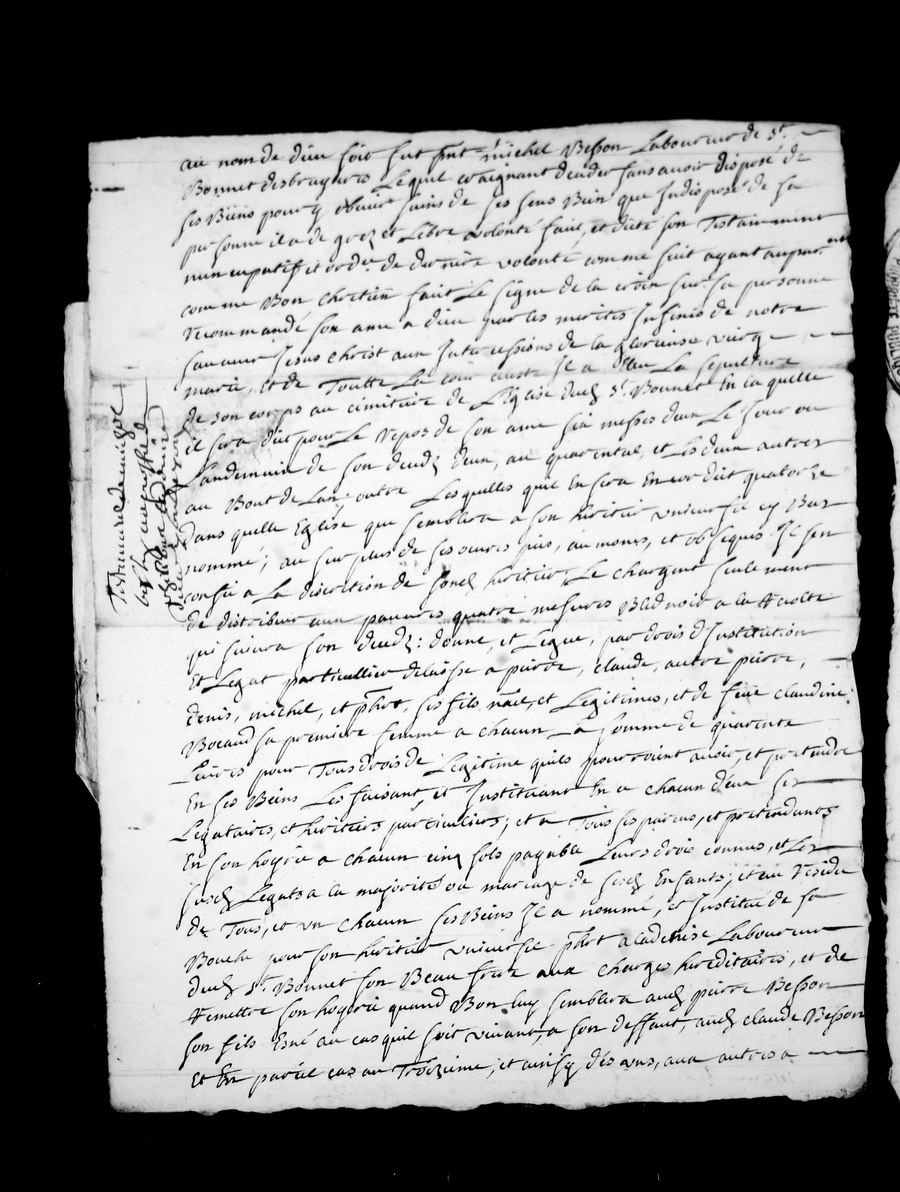 au nom de dieu soit fut pnt michel Besson Laboureur de St
Bonnet des bruyeres Lequel craignant deceder sans avoir disposé de
ses Biens pour q obuier sains de ses sens Bien que Indisposé de sa
personne il a de grez et Lébre volonté fait, et dicté son Testamment
nuncupatif et ordre de derniere volonté comme suit ayant auparant
comme Bon chretien fait Le signe de la croix sur sa personne
recommandé son ame a dieu par les merites Infinis de notre
sauueur Jesus Christ aux Intercessions de la glorieuse vierge
marie, et de Toutte La cour celeste Il a eslu La sepulture
de son corps au cimitiere de L'Eglise dud St Bonnet En laquelle
il sera dit pour Le repos de son ame six messes deux Le Jour ou
Landemain de son deceds deux, au quarental, et Les deux autres
au Bout de Lan outre Lesquelles quil En sera Encor dit quatorze
Dans quelle Eglise que semblera a son heritier vniuersel cy Bas
nommé, au surplus de ses œuures pies, aumones, et obseques Il s'en
confie a La discretion de sond heritier, Le chargent seulement
de distribuer aux pauures quatre mesures Bled noir a la recolte
qui suiura son deceds: donne, et Legue, par droit d'Institution
Et Legat particullier delaisse a pierre, claude, autre pierre,
denis, michel, et phbert, ses fils nat, et Legitimes, et de feüe claudine
Bocaud sa premiere femme a chacun La somme de quarente
Liures pour Tous droits de Legitime quils pourroient auoir, et pretendre
En ses Biens Les faisant, et Instituant En a chacun d'eux ses
Legataires, et heritiers particuliers; et a Tous ses parens, et pretendants
En son hoyrie a chacun cinq sols payable Leurs droits connus, et Les
susd Legats a la majorité ou mariage de sesd Enfants; et au residu
de Tous, et vn chacun ses Biens Il a nommé, et Institué de sa
Bouche pour son heritier vniuersel phbert aladenise Laboureur
dud St Bonnet son Beau frere aux charges hereditaires, et de
remettre son hoyrie quand Bon luy semblera aud pierre Besson
son fils Esné au cas quil soit viuant, a son deffaut, aud claude Besson
Et En pareil cas au Troizieme, et ainsy des vns, aux autres a